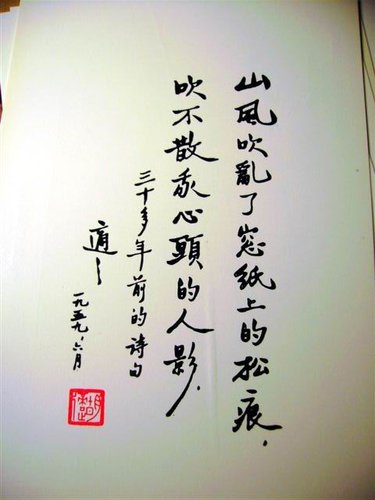 山風吹亂了窓紙上的松痕，
吹不散我心頭的人影，
三十多年前的詩句
適之
一九五九、六月